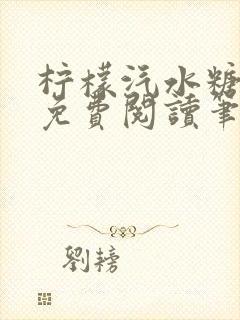 柠檬汽水糖
免費閱讀筆
劉榜